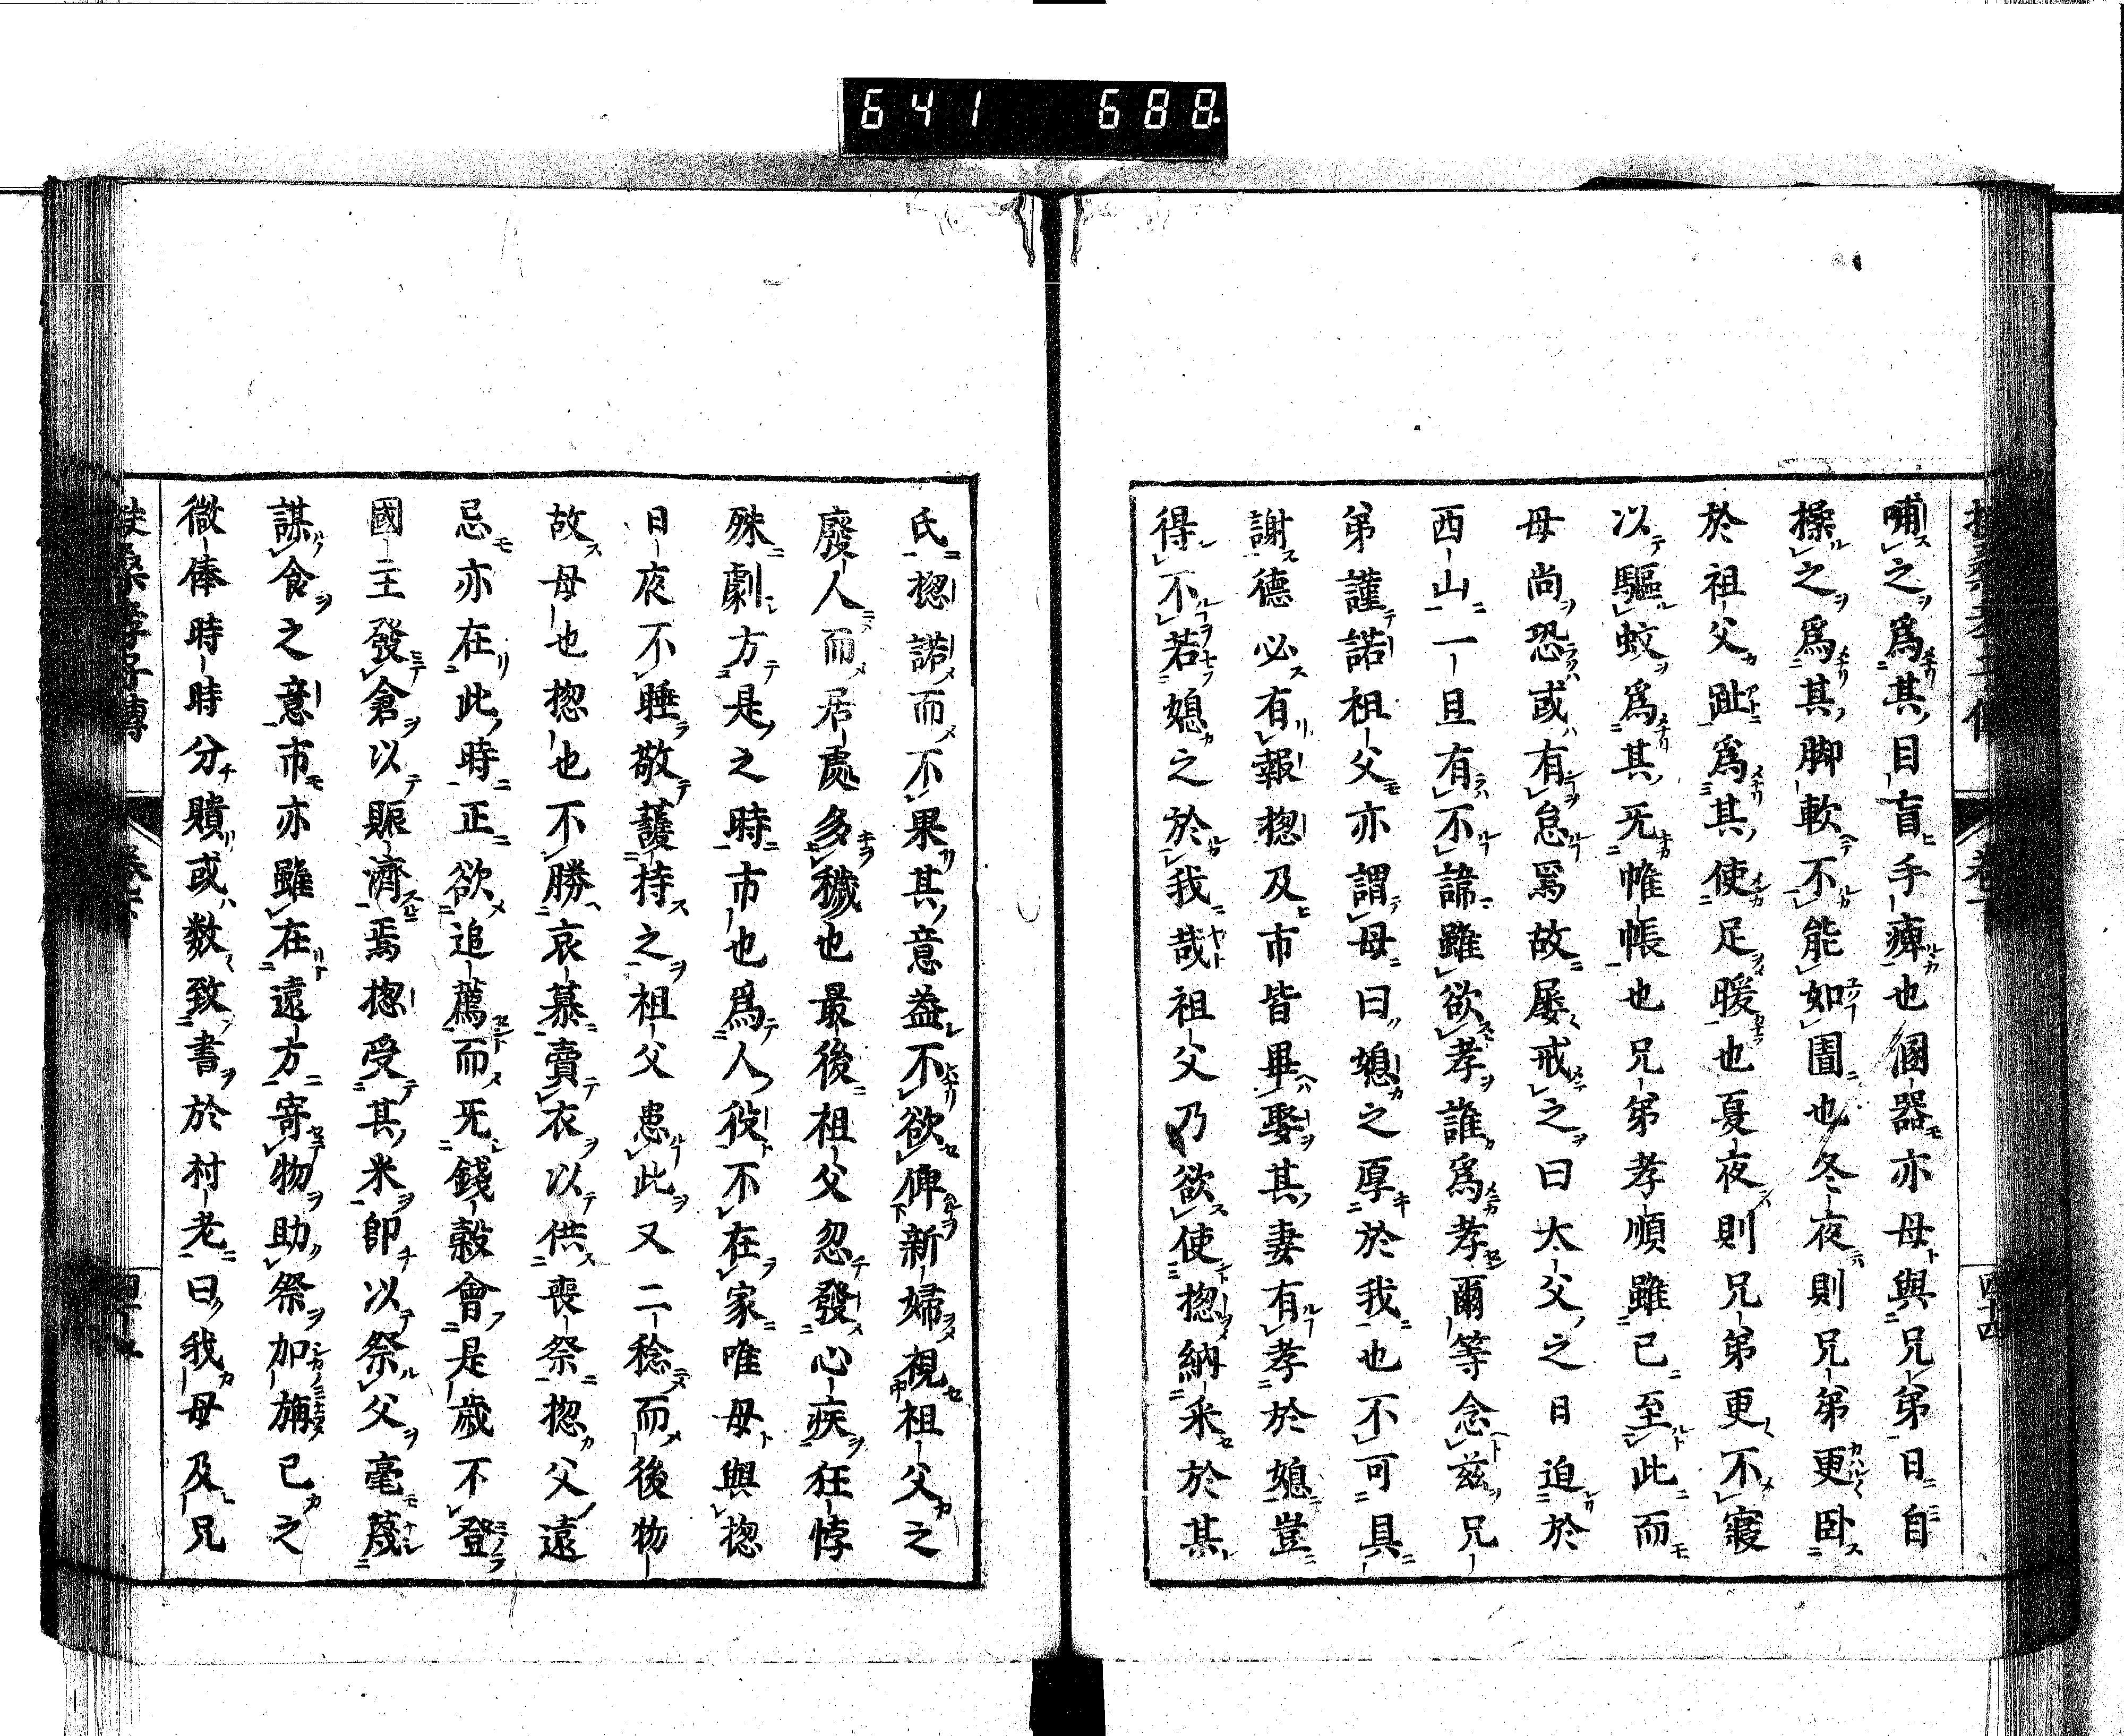 641 688
哺之為其目盲手痺也溷器亦母與兄弟日自
操之為其脚軟不能如圊也冬夜則兄弟更臥
於祖父趾為其使足暖也夏夜則兄弟更不寢
以驅蚊為其无帷帳也兄弟孝順雖已至此而
母尚恐或有怠焉故屡戒之曰大父之日迫於
西山一旦有不諱雖欲孝誰為孝爾等念茲兄
弟謹諾祖父亦謂母曰媳之厚於我也不可具
謝德必有報揔及市皆畢娶其妻有孝於媳豈
得不若媳之於我哉祖父乃欲使揔納采於其
氏揔諾而不果其意益不欲俾新婦視祖父之
廢人而居處多穢也最後祖父忽發心疾狂悖
殊劇方是之時市也為人役不在家唯母與揔
日夜不睡敬護持之祖父患此又二稔而後物
故母也揔也不勝哀慕賣衣以供喪祭揔父遠
忌亦在此時正欲追薦而无錢穀會是歲不登
國主發倉以賑濟焉揔受其米即以祭父毫蔑
謀食之意市亦雖在遠方寄物助祭加旃已之
微俸時時分贖或数致書於村老曰我母及兄